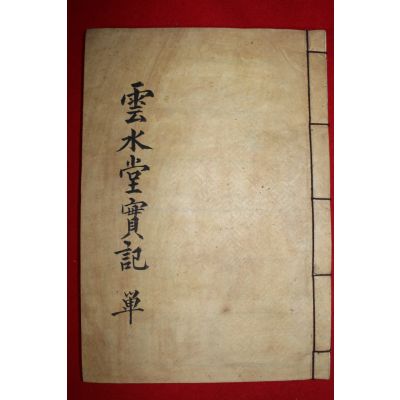 雲水堂實記 單